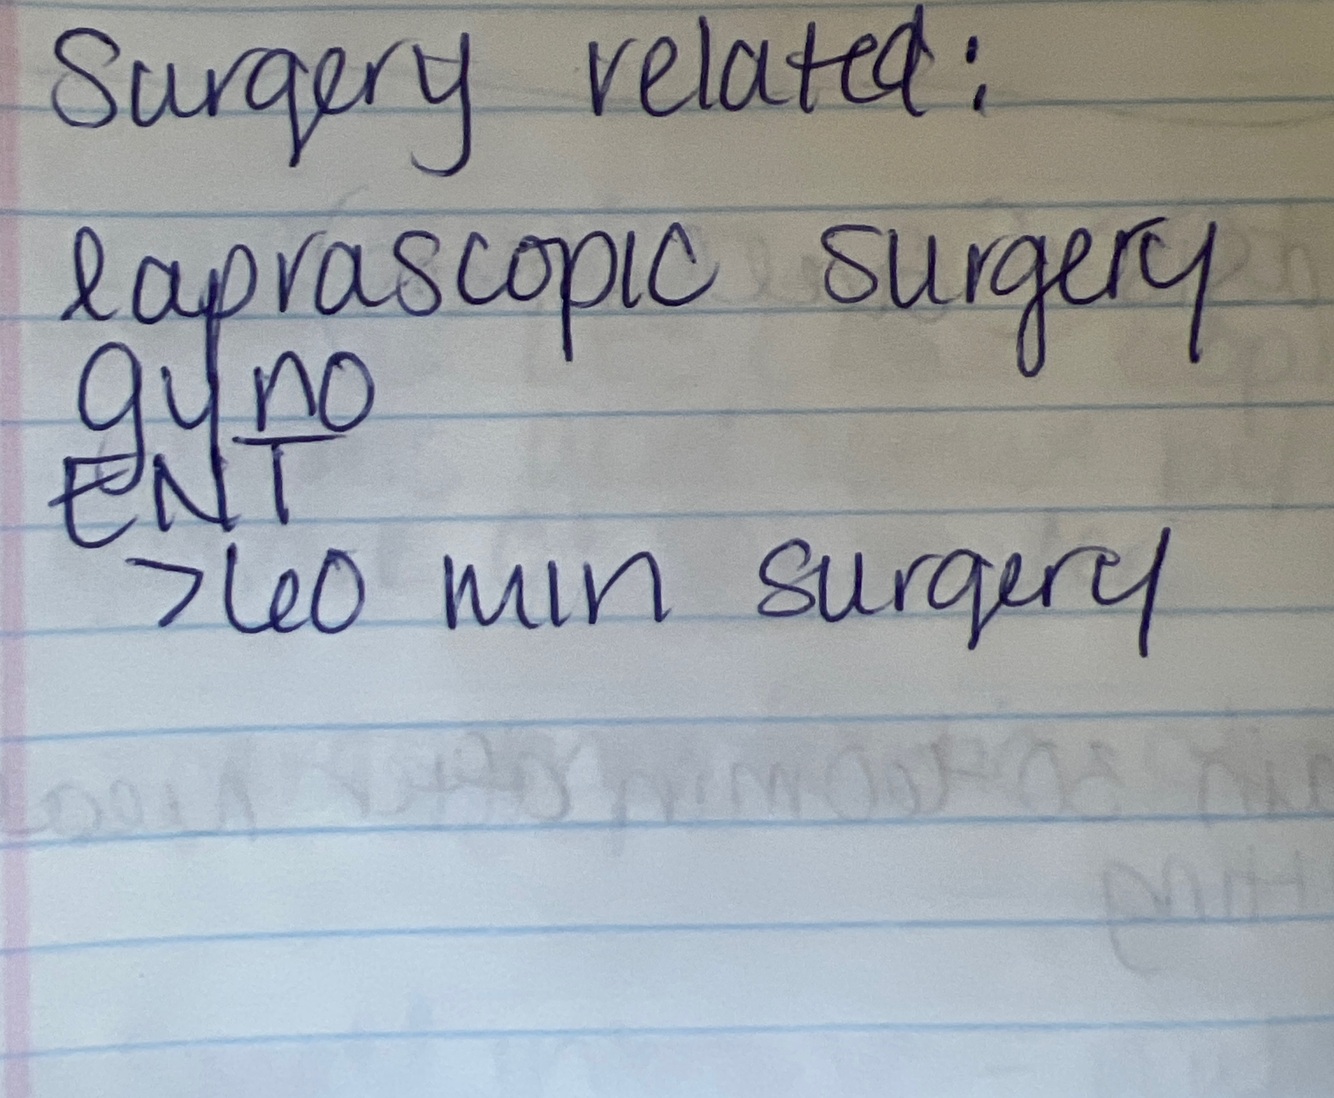 Surgery related:
laprascopic surgery
gyno
ENT
>60 min surgery